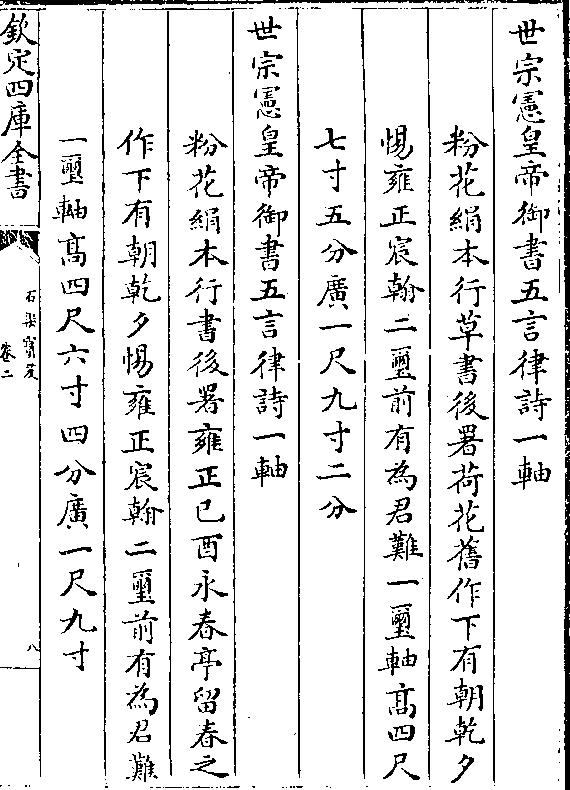 世宗憲皇帝御書五言律詩一軸
粉花絹本行草書後署荷花舊作下有朝乾夕
惕雍正宸翰二璽前有為君難一璽軸髙四尺
七寸五分廣一尺九寸二分
世宗憲皇帝御書五言律詩一軸
粉花絹本行書後署雍正已酉永春亭留春之
作下有朝乾夕惕雍正宸翰二璽前有為君難
一璽軸髙四尺六寸四分廣一尺九寸
欽定四庫全書
石渠寳笈
卷二
八